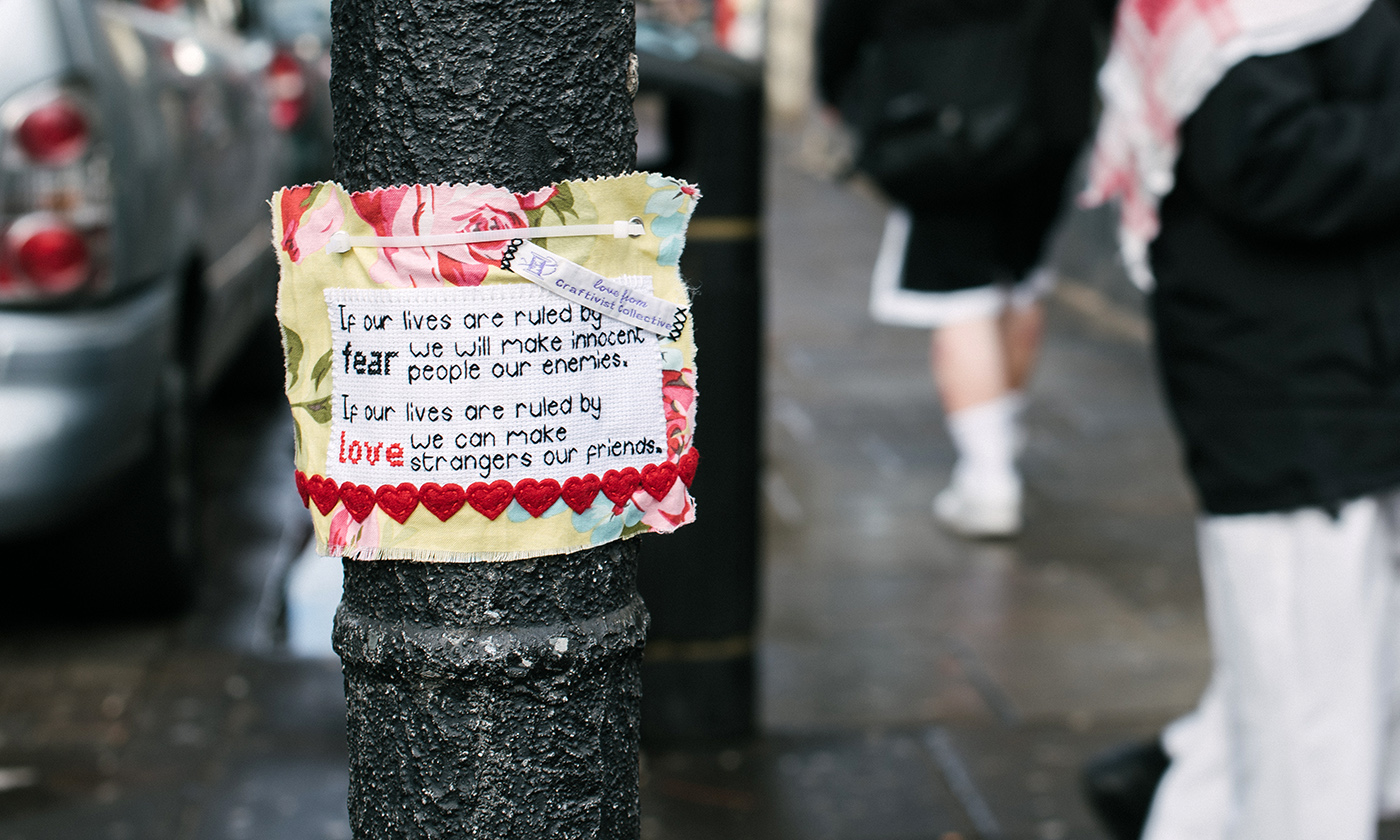 love from
Craftivist Collective
If our lives are ruled by
fear we will make innocent
people our enemies.
If our lives are ruled by
love we can make
strangers our friends.